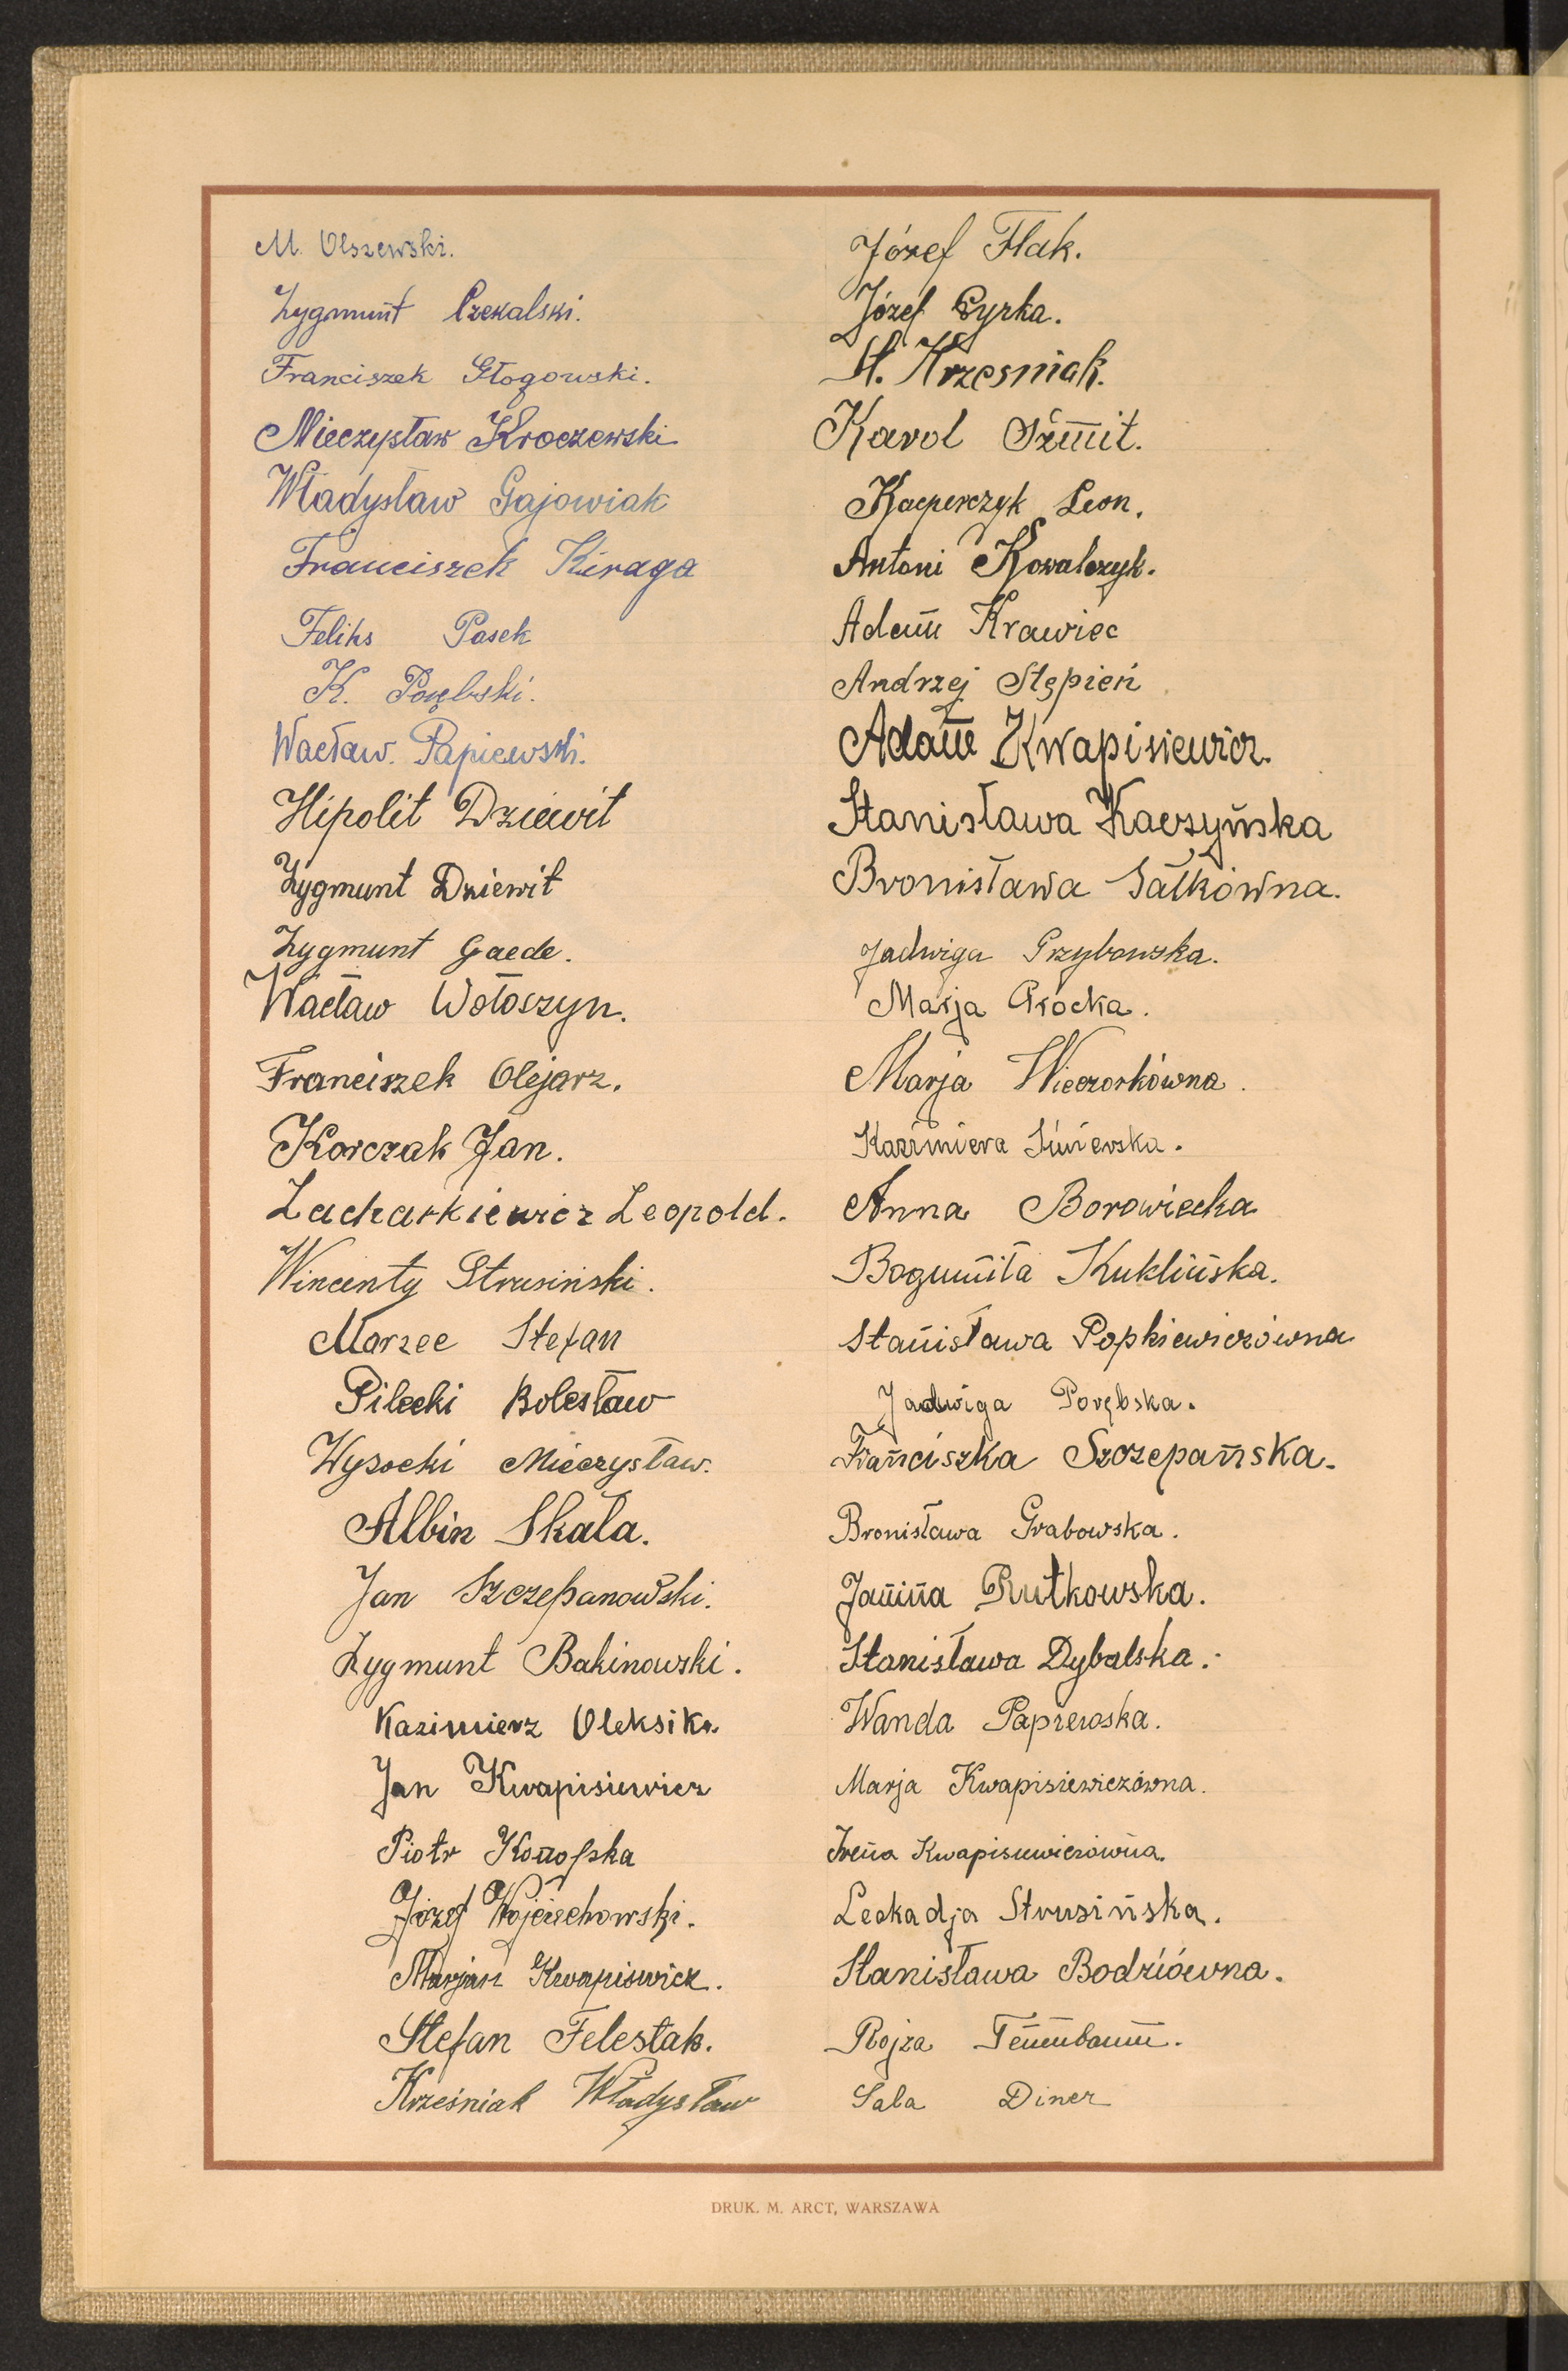 M. Olszewski.
Zygmunt Czekalski.
Franciszek Głogowski.
Mieczysław Kroczewski
Władysław Gajowiak
Franciszek Kiraga
Feliks Pasek
K. Porębski.
Wacław. Papiewski.
Hipolit Dziewit
Zygmunt Dziewit
Zygmunt Gaede.
Wacław Wołoszyn.
Franciszek Olejarz.
Korczak Jan.
Zacharkiewicz Leopold.
Wincenty Strusiński.
Marzec Stefan
Pilecki Bolesław
Wysocki Mieczysław.
Albin Skała.
Jan Szczepanowski.
Zygmunt Bakinowski.
Kazimierz Oleksik.
Jan Kwapisiewicz
Piotr Konopska
Józef Wojciechowski.
Marjan Kwapisiewicz.
Stefan Felestak.
Krześniak Władysław
Józef Flak.
Józef Cyrka.
St. Krzesniak.
Karol Szmit.
Kacperczyk Leon.
Antoni Kowalczyk.
Adam Krawiec
Andrzej Stępień
Adam Kwapisiewicz.
Stanisława Kaczyńska
Bronisława Sałkówna.
Jadwiga Przybowska.
Marja
Marja Wieczorkówna.
Kazimiera
Anna Borowiecka
Bogumiła Kuklińska.
Stanisława Popkiewiczówna
Jadwiga Porębska.
Franciszka Szczepańska.
Bronisława Grabowska.
Janina Rutkowska.
Stanisława Dybalska.
Wanda Papiewska.
Marja Kwapisiewiczówna.
Irena Kwapisiewiczówna.
Leokadja Strusińska.
Stanisława Bodziówna.
Rojza Tenenbaum.
Sala Diner
DRUK. M. ARCT, WARSZAWA